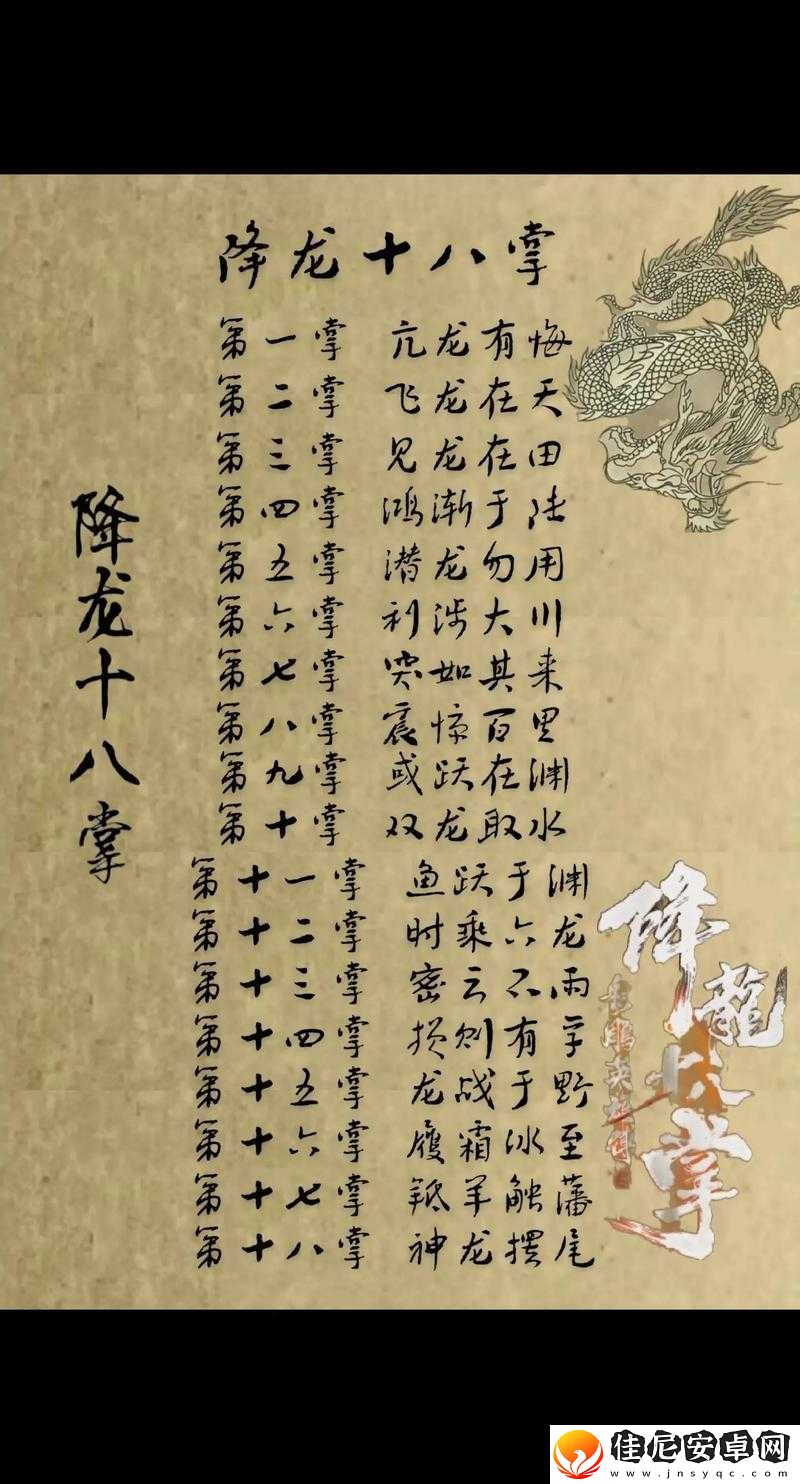 降龙十八掌
第一掌 亢龙有悔
第二掌 飞龙在天
第三掌 见龙在田
第四掌 鸿渐于陆
第五掌 潜龙勿用
第六掌 利涉大川
第七掌 突如其来
第八掌 震惊百里
第九掌 或跃在渊
第十掌 双龙取水
第十一掌 鱼跃于渊
第十二掌 时乘六龙
第十三掌 密云不雨
第十四掌 损则有孚
第十五掌 龙战于野
第十六掌 履霜冰至
第十七掌 羝羊触藩
第十八掌 神龙摆尾
降龙十八掌
降龍
掌
佳尼安卓网
www.jnsyqc.com